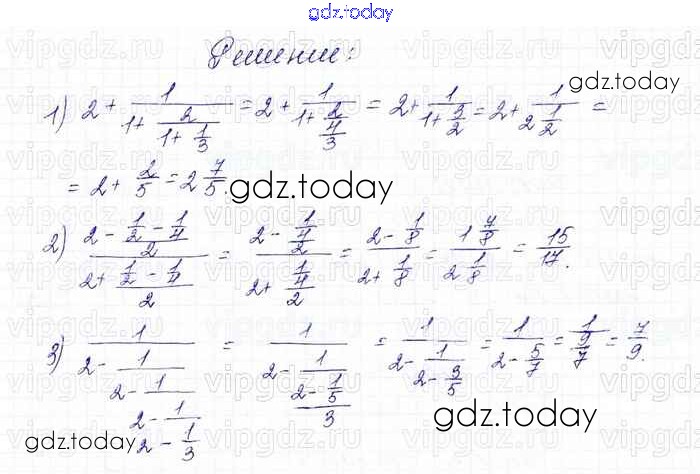 gdz.today
Решение:
gdz.today
1) 2 + 1/(1 + 2/(1 + 1/3)) = 2 + 1/(1 + 2/(4/3)) = 2 + 1/(1 + 3/2) = 2 + 1/(2 1/2) =
= 2 + 2/5 = 2 7/5.
gdz.today
2) (2 - (1/2 - 1/4)/2)/(2 + (1/2 - 1/4)/2) = (2 - (1/4)/2)/(2 + (1/4)/2) = (2 - 1/8)/(2 + 1/8) = (1 7/8)/(2 1/8) = 15/17.
3) 1/(2 - 1/(2 - 1/(2 - 1/(2 - 1/3)))) = 1/(2 - 1/(2 - 1/(5/3))) = 1/(2 - 1/(2 - 3/5)) = 1/(2 - 5/7) = 1/(9/7) = 7/9.
gdz.today
gdz.today
vipgdz.ru